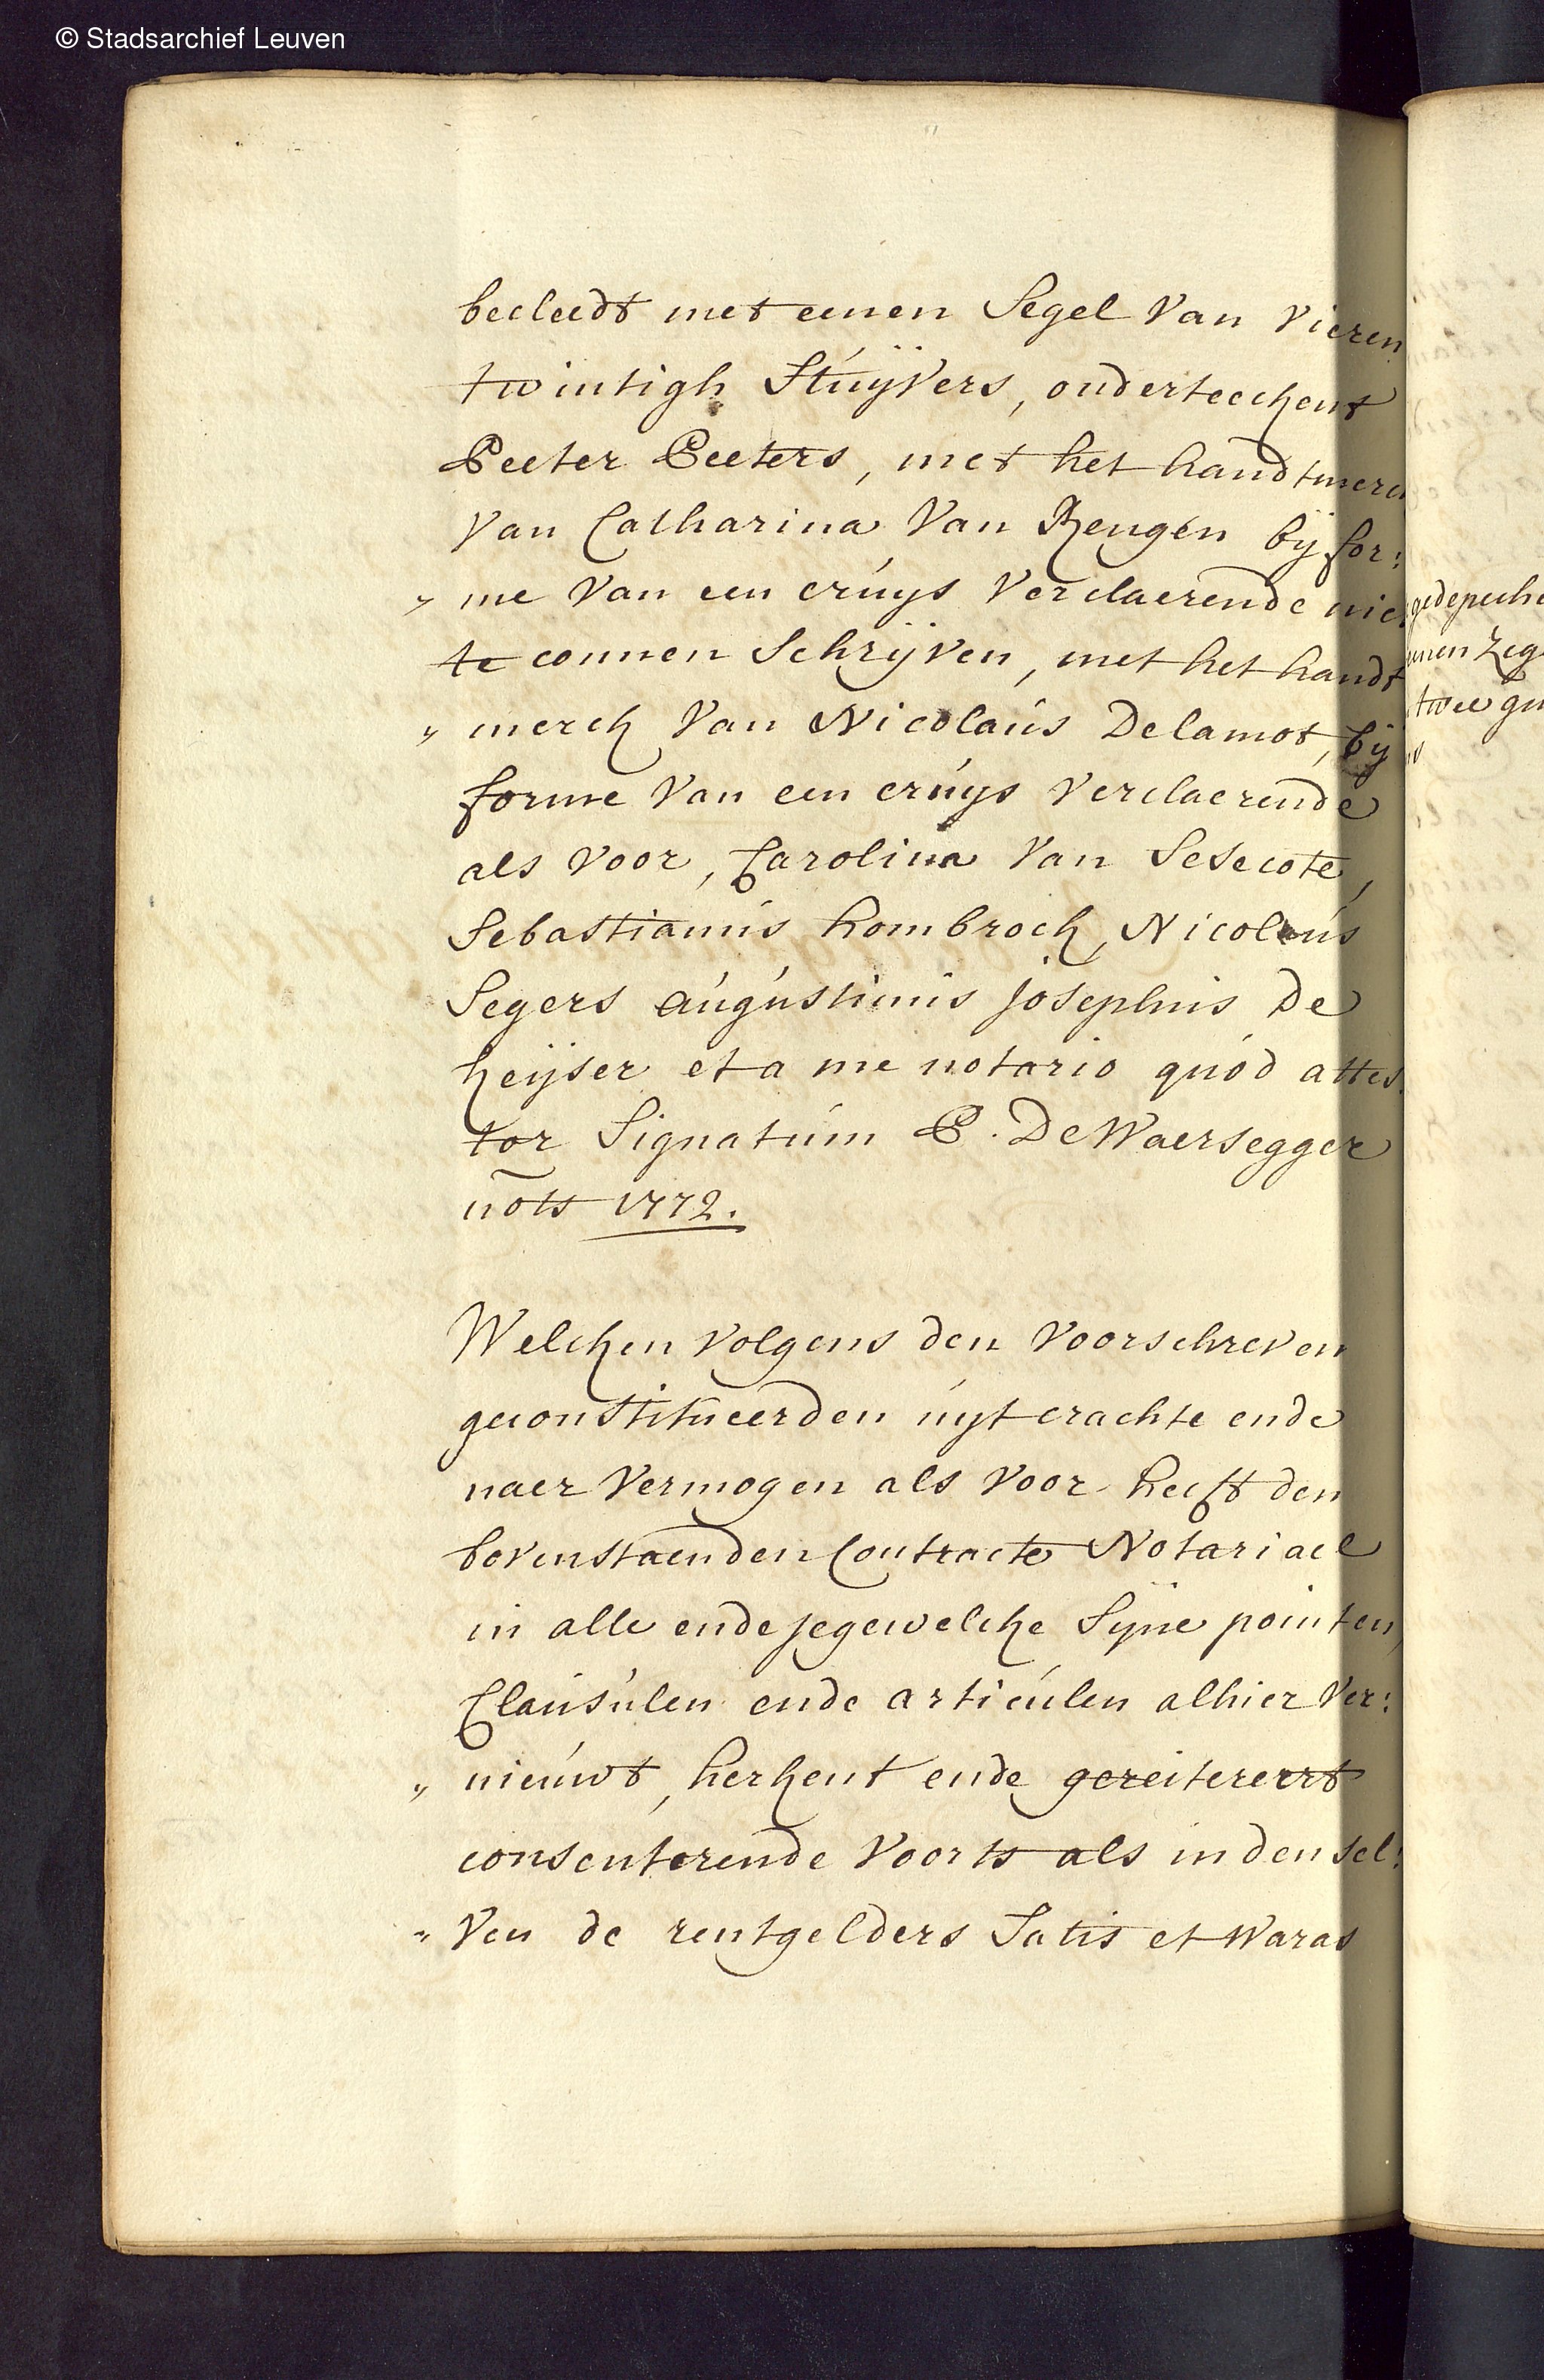 © Stadsarchief Leuven
becleedt met eenen Segel Van Vieren
twintigh Stuÿvers, onderteeckent
Peeter Peeters, met het handtmerck
Van Catharina Van Rengen bÿ for:
„ me Van een cruys Verclaerende niet
te connen Schrÿven, met het handt
„ merck Van Nicolaus Delamot, bÿ
forme Van een cruys Verclaerende
als Voor, Carolina Van Sesecote,
Sebastianus hombrock, Nicolaus
Segers augustinus josephus De
keÿser et a me notario quod attes
tor Signatum P. De Waersegger
nots 1772.
Welcken Volgens den Voorschreven
geconstitueerden uyt crachte ende
naer Vermogen als Voor heeft den
bovenstaenden Contracte Notariael
in alle ende jegewelcke Sÿne pointen,
Clausulen ende articulen alhier Ver:
„ nieuwt, herkent ende gereitereert
consenterende Voorts als in den sel:
„ Ven de rentgelders Satis et Waras
gedepeche
eenen Zeg
twee gu